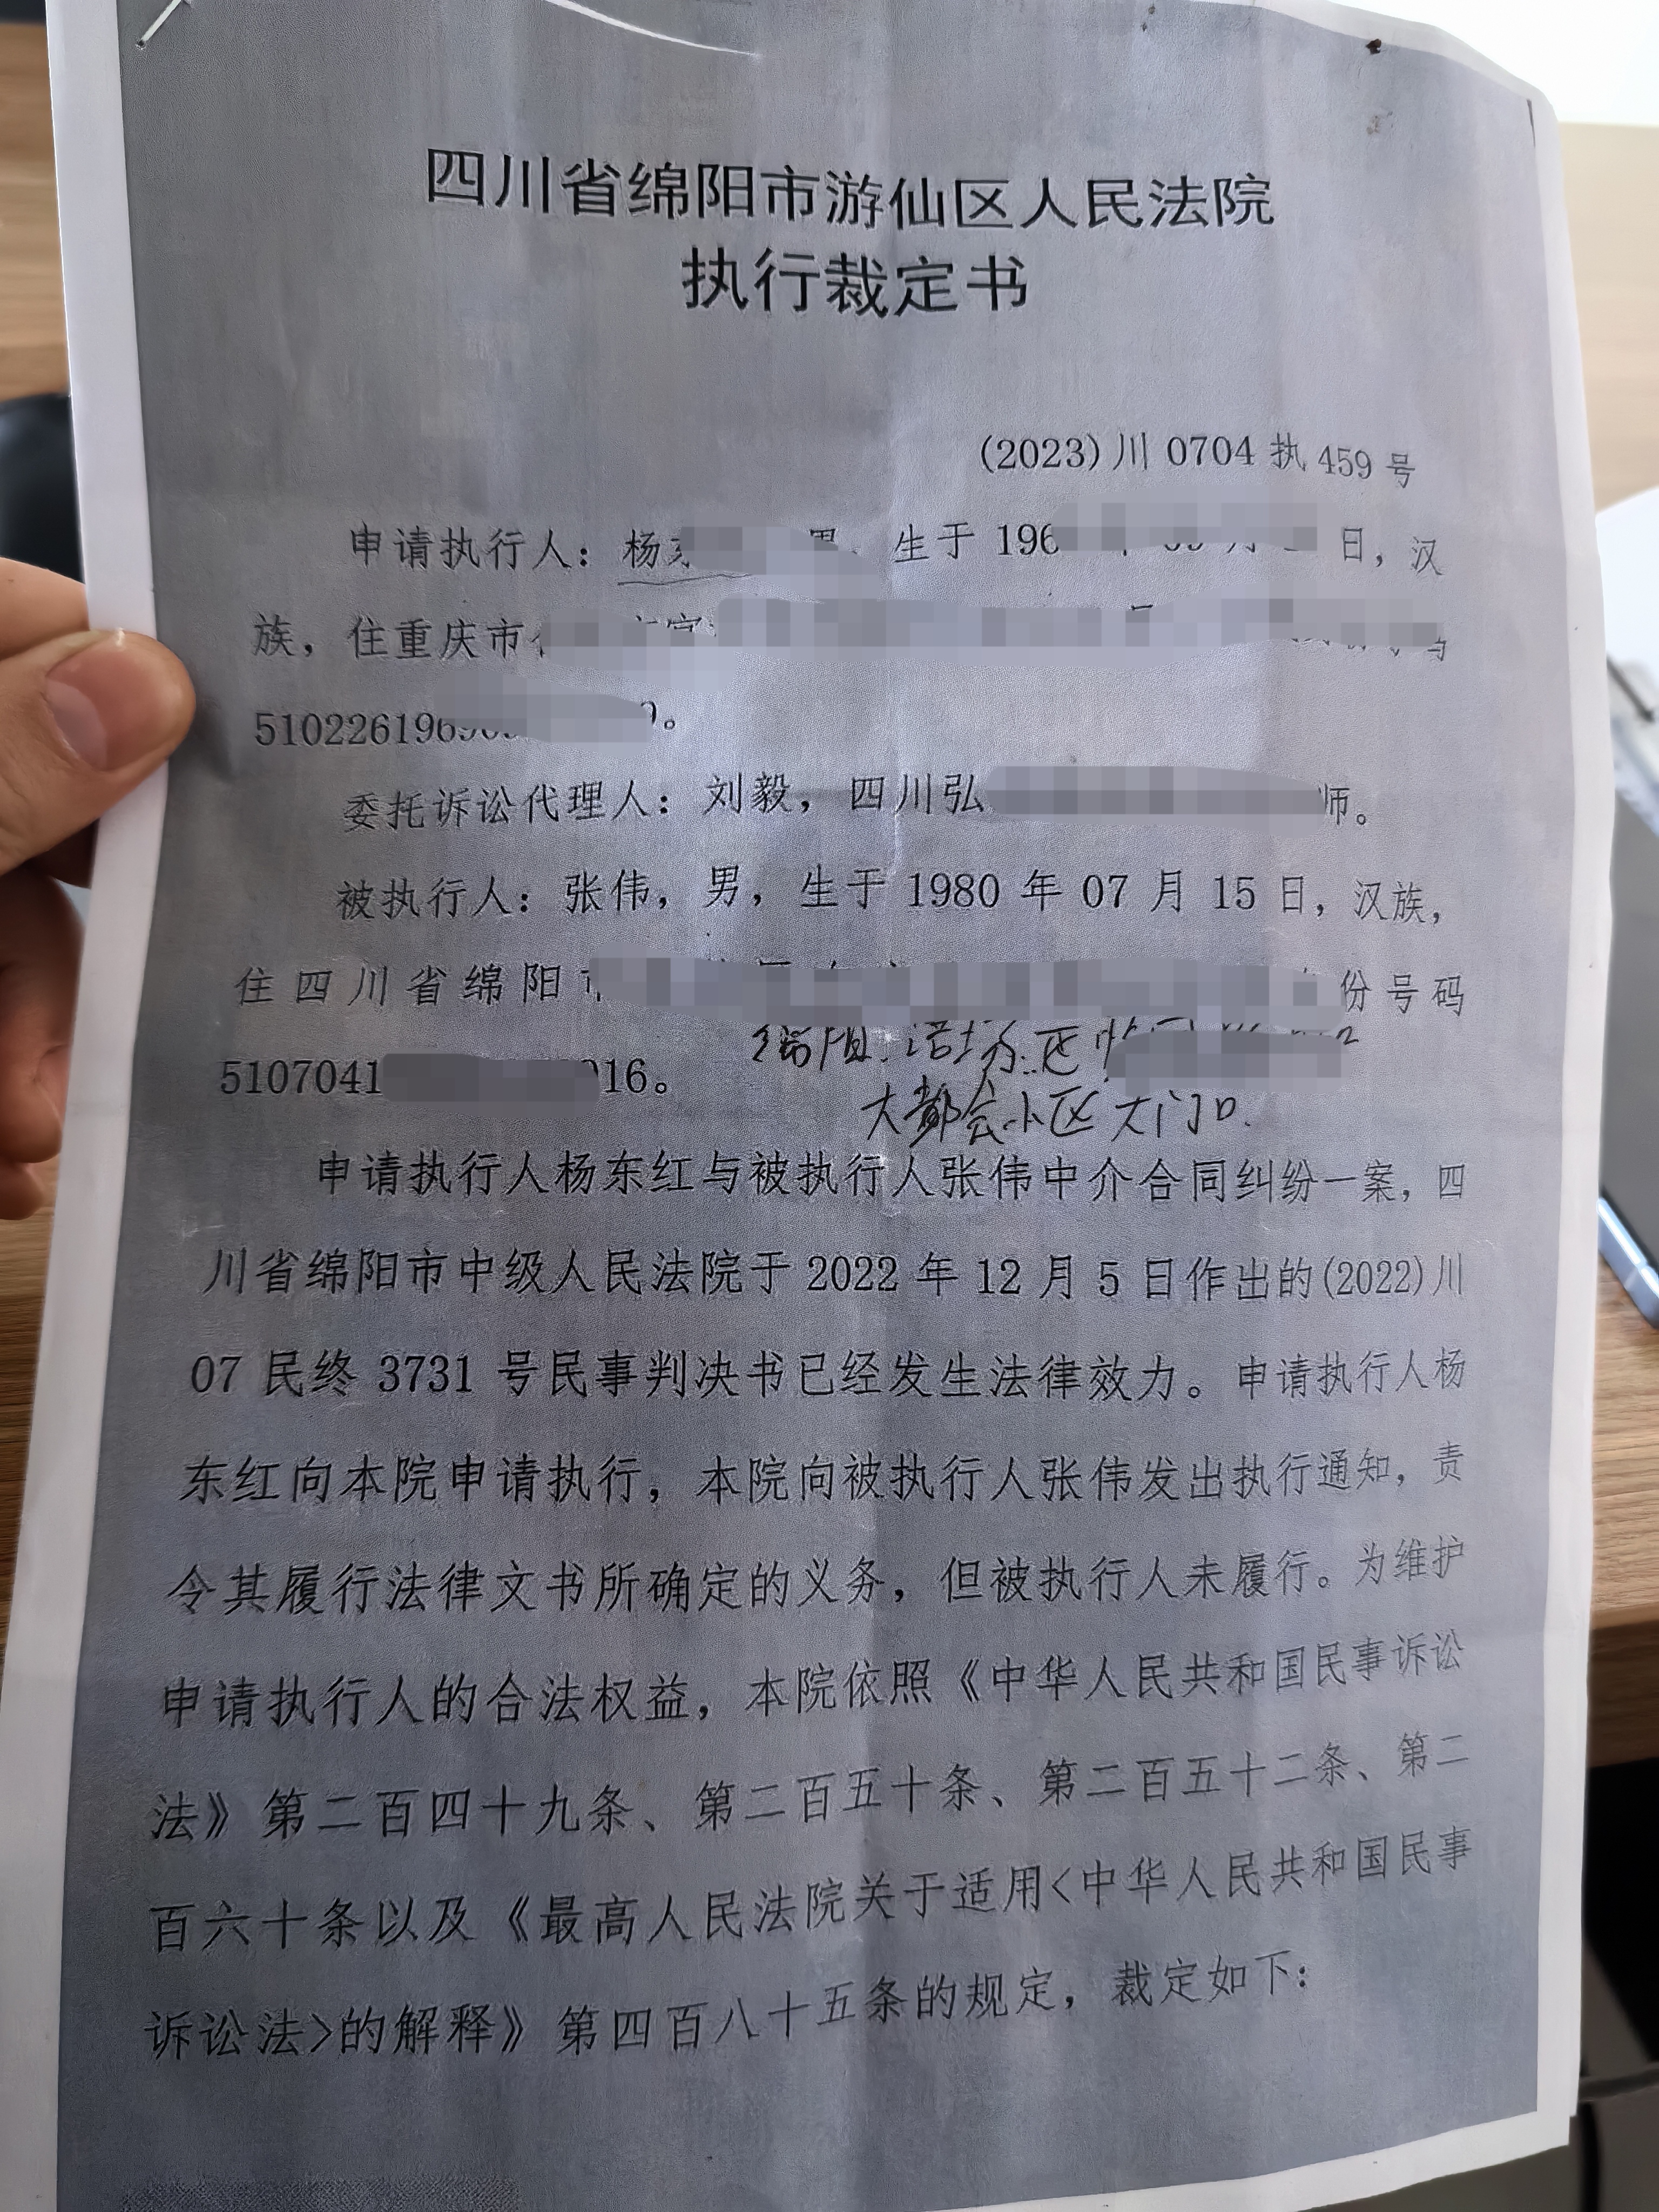 四川省绵阳市游仙区人民法院
执行裁定书
(2023)川 0704 执 459 号
申请执行人：杨 生于 196 日，汉
族，住重庆市
510226196
委托诉讼代理人：刘毅，四川弘 师。
被执行人：张伟，男，生于 1980 年 07 月 15 日，汉族，
住四川省绵阳 份号码
5107041 016。
绵阳.
大都会小区大门口.
申请执行人杨东红与被执行人张伟中介合同纠纷一案，四
川省绵阳市中级人民法院于 2022 年 12 月 5 日作出的(2022)川
07 民终 3731 号民事判决书已经发生法律效力。申请执行人杨
东红向本院申请执行，本院向被执行人张伟发出执行通知，责
令其履行法律文书所确定的义务，但被执行人未履行。为维护
申请执行人的合法权益，本院依照《中华人民共和国民事诉讼
法》第二百四十九条、第二百五十条、第二百五十二条、第二
百六十条以及《最高人民法院关于适用<中华人民共和国民事
诉讼法>的解释》第四百八十五条的规定，裁定如下：